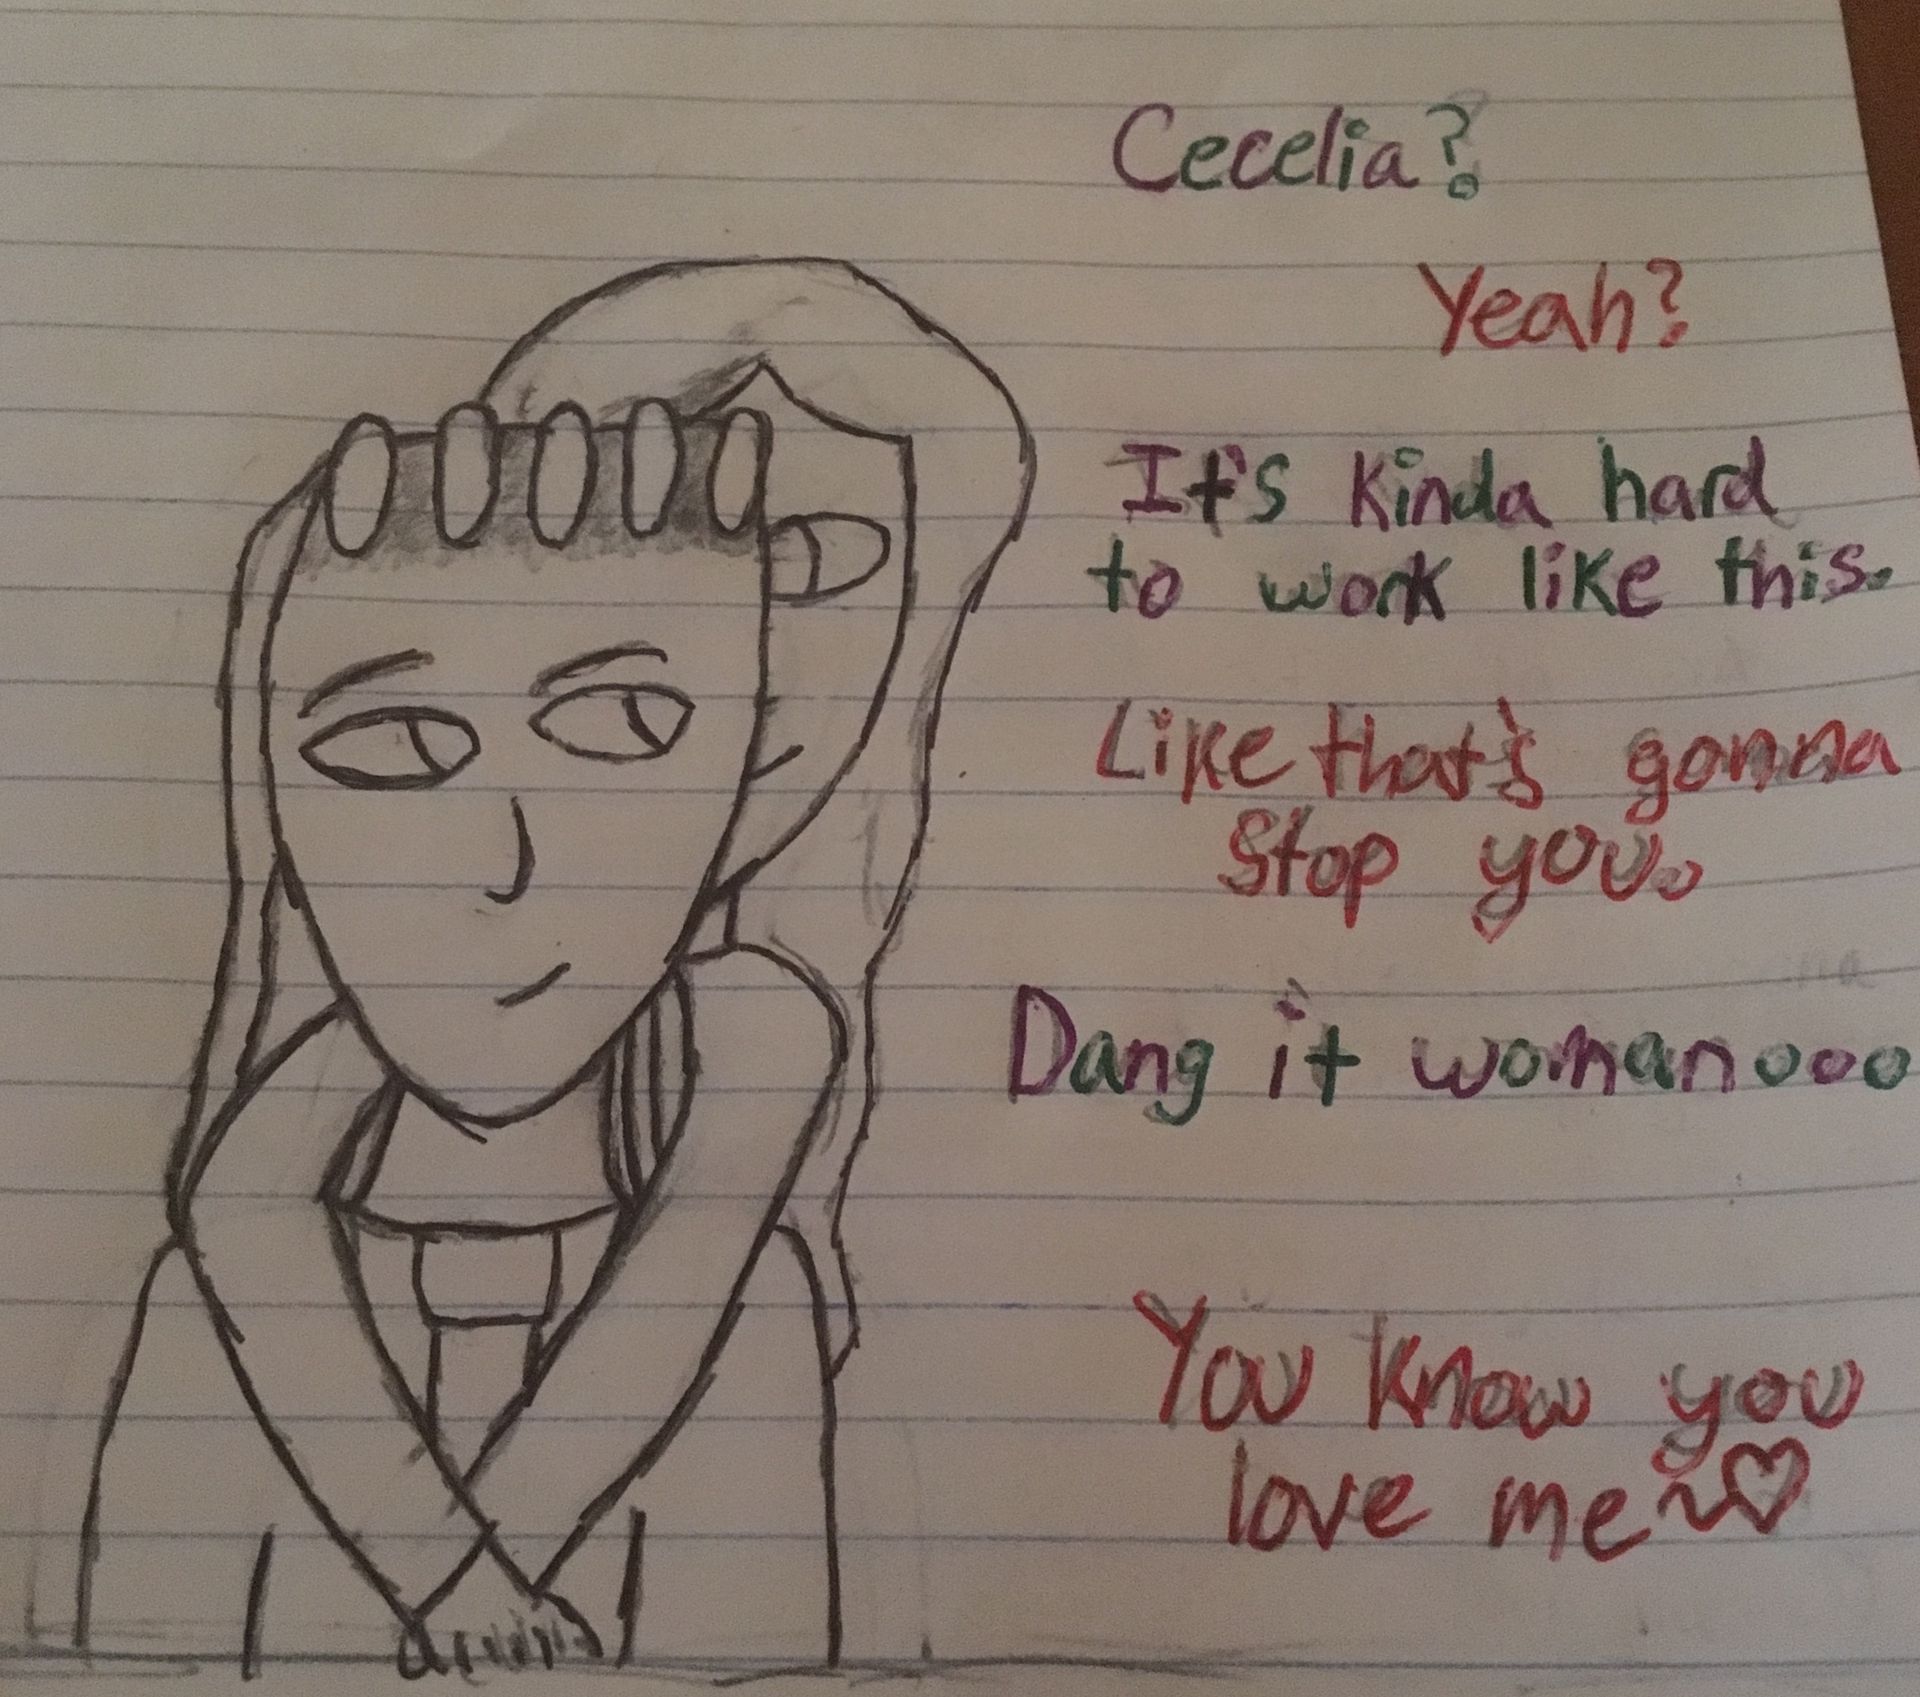 Cecelia?
Yeah?
It's kinda hard
to work like this.
Like that's gonna
stop you.
Dang it woman...
You know you
love me~♡